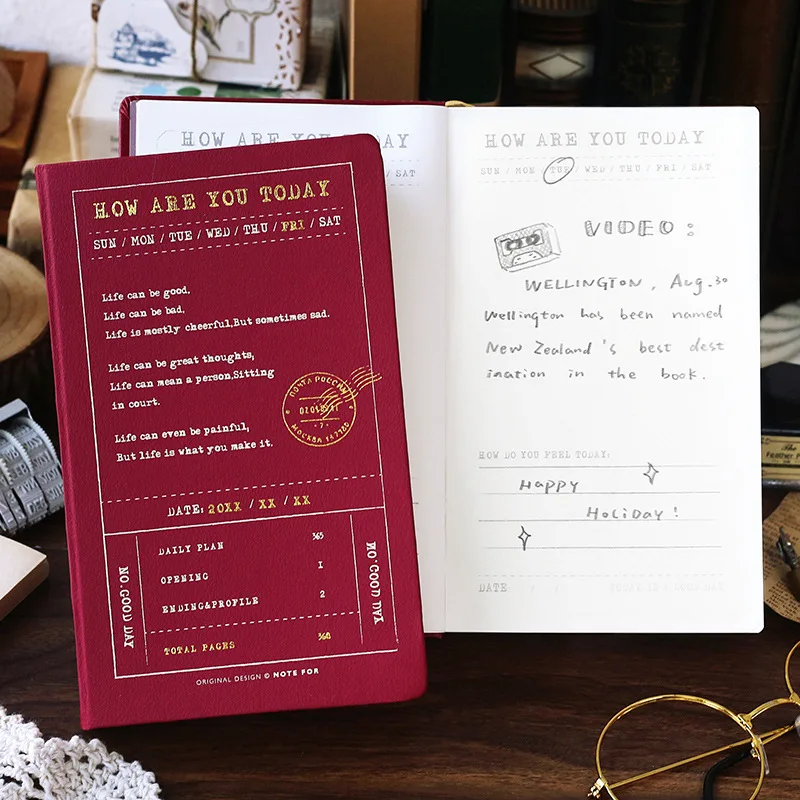 HOW ARE YOU TODAY
SUN / MON / TUE / WED / THU / FRI / SAT
Life can be good,
Life can be bad,
Life is mostly cheerful,But sometimes sad.
Life can be great thoughts,
Life can mean a person.Sitting
in court.
Life can even be painful,
But life is what you make it.
ПОЧТА РОССИИ
МОСКВА
DATE: 20XX / XX / XX
NO. GOOD DAY
DAILY PLAN 365
OPENING 1
ENDING&PROFILE 2
TOTAL PAGES 368
NO. GOOD DAY
ORIGINAL DESIGN © NOTE FOR
HOW ARE YOU TODAY
/ SAT
HOW ARE YOU TODAY
SUN / MON / TUE / WED / THU / FRI / SAT
VIDEO:
WELLINGTON, Aug.30
Wellington has been named
New Zealand's best dest
ination in the book.
HOW DO YOU FEEL TODAY:
Happy
Holiday!
DATE: / /
The
Feather P